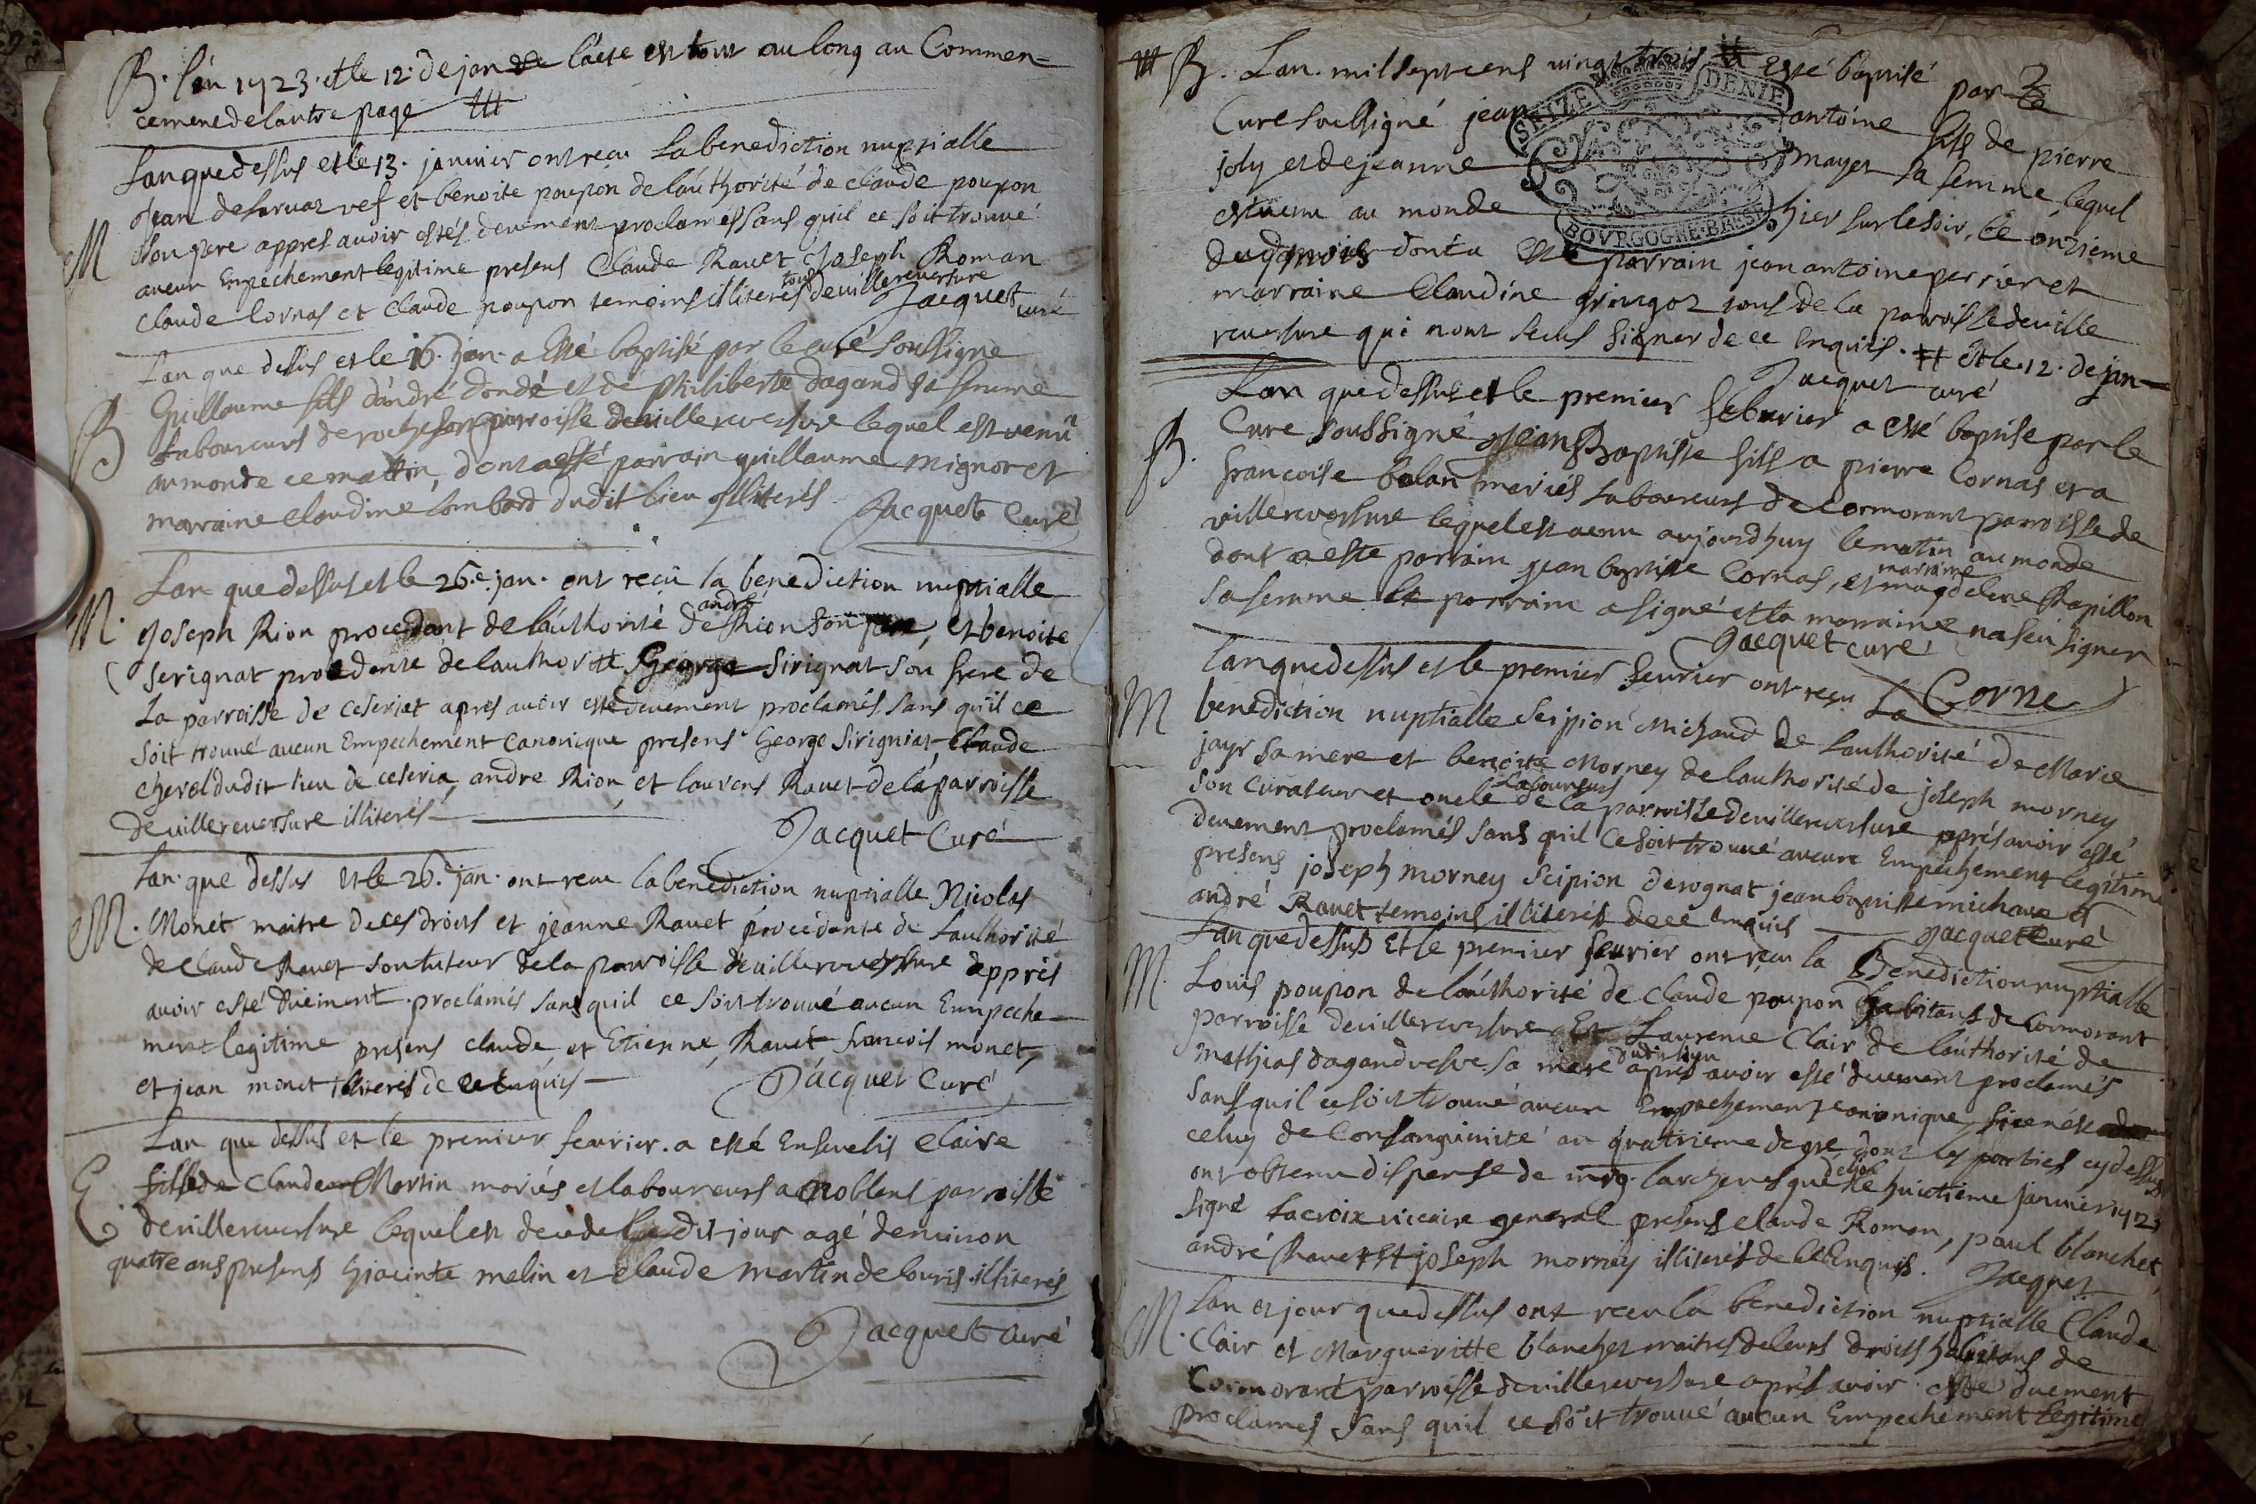 B. lan 1723. et le 12. de jan l'acte est tout au long au Commen=
cement de lautre page
Lan que dessus et le 13. janvier ont recu La benediction nuptialle
M Jean vef et benoite poupon de lauthorité de claude poupon
son pere appres avoir estés deuement proclamés sans quil ce soit trouué
aucun Empechement legitime presens Claude Rauet Joseph Roman
claude Cornas et Claude poupon temoins illiteres tous de uillereuersure
Jacquet curé
Lan que dessus et le 16. jan. a esté baptisé par le curé soussigné
B Guillaume fils dandré dondé et de philiberte dagand sa femme
Laboureurs de rochefort parroisse de uillereuersure lequel est uenu
au monde ce mattin, dont a esté parrain guillaume mignot et
marraine claudine lombard dudit lieu illiterés Jacquet Curé
Lan que dessus et le 26.e jan. ont reçu la benediction nuptialle
M. Joseph Rion procedant de lauthorité de andré Rion son pere, et benoite
serignat procedente de lauthorité George Sirignat son frere de
La parroisse de ceseriat apres auoir esté deuement proclamés sans quil ce
soit trouué aucun Empechement Canonicque presens George Sirigniat Claude
cherel dudit lieu de ceseria, andre Rion et laurens Rauet de la parroisse
de uillereuersure illiterés
Jacquet Curé
Lan que dessus et le 26. jan. ont receu la benediction nuptialle Nicolas
M. Monet maitre de ces droits et jeanne Rauet procedante de Lauthorité
de Claude Rauet son tuteur de la parroisse de uillereuersure appres
auoir esté duement proclamés sans quil ce soit trouué aucun Empeche
ment legitime presens claude et Etienne Rauet francois monet,
et jean monet illiterés de ce enquis Jacquet Curé
Lan que dessus et le premier feurier. a esté Enseuelis Claire
E. fille de Claude Martin mariés et laboureurs a noblens parroisse
de uillereuersure lequel est decedé ledit jour agé denuiron
quatre ans presens hiacinte melin et Claude martin de louris illiterés
Jacquet Curé
B. Lan mil sept cens uingt trois # Esté baptisé par le
SEIZE DENIE
Curé soussigné jean antoine fils de pierre
joly et de jeanne mayet sa femme lequel
est uenu au monde hier sur le soir, le onzieme
BOVRGOGNE·BRESSE
du mois dont a esté parrain jean antoine perrier et
marraine Claudine gringoz tous de la parroisse de uille
reuersure qui nont seus signer de ce enquis. # et le 12. de jan
Jacquet curé
Lan que dessus et le premier feburier a esté baptisé par le
B. Curé soussigné Jean Baptiste fils a pierre Cornas et a
francoise balan mariés laboureurs de Cormorant parroisse de
uillereuersure lequel est uenu aujourdhuy le matin au monde
dont a esté parrain jean baptiste Cornas, et marraine magdelene Chapillon
sa femme le parrain a signé et la marraine na seu signer
Jacquet curé
Corne
Lan que dessus et le premier feurier ont reçu La
M benediction nuptialle scipion Michaud de Lauthorité de Marie
jayr sa mere et benoite Morney de lauthorité de joseph morney
son Curateur et oncle Laboureurs de la parroisse de uillereuersure aprés auoir esté
deuement proclamés sans quil ce soit trouué aucun Empechement legitime
presens joseph morney scipion derognat jean baptiste michaud et
andré Rauet temoins illiterés de ce enquis Jacquet Curé
Lan que dessus Et le premier feurier ont reçu la Benediction nuptialle
M. Louis poupon de lauthorité de Claude poupon habitans de Cormorant
parroisse de uillereuersure Et Laurence Clair de lauthorité de
mathias dagand vesve sa mere dudit lieu apres auoir esté deuement proclamés
sans quil ce soit trouué aucun Empechement canonique si ce nest
celuy de Consanguinité au quatrieme degre dont les parties cy dessus
ont obtenu dispense de mrg. larcheueque de lion le huictieme januier 1723
signé Lacroix uiccaire general presens claude Roman, paul blanchet,
andré Rauet Et joseph morney illiterés de ce Enquis. Jacquet
Lan et jour que dessus ont receu la benediction nuptialle Claude
M. Clair et Margueritte blanchet maitres de leurs droits habitans de
Cormorant parroisse de uillereuersure aprés auoir esté duement
proclames sans quil ce soit trouué aucun Empechement legitime